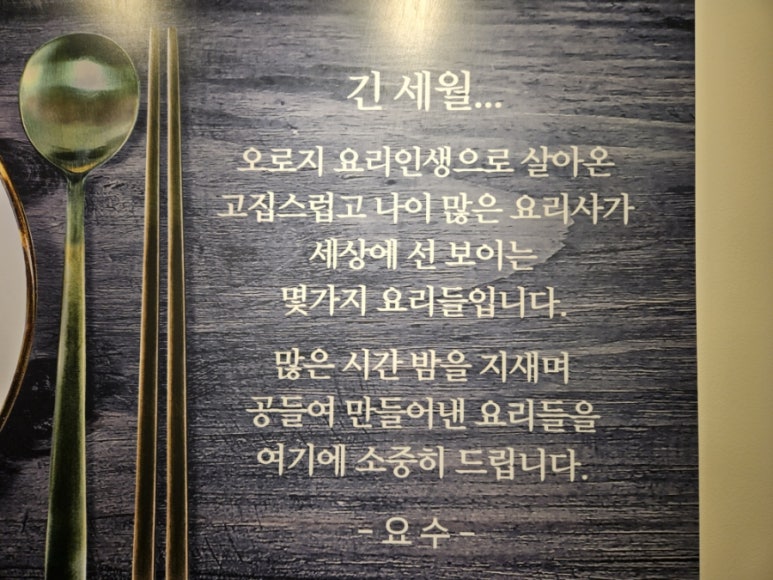 긴 세월...
오로지 요리인생으로 살아온
고집스럽고 나이 많은 요리사가
세상에 선 보이는
몇가지 요리들입니다.
많은 시간 밤을 지재며
공들여 만들어낸 요리들을
여기에 소중히 드립니다.
- 요 수 -